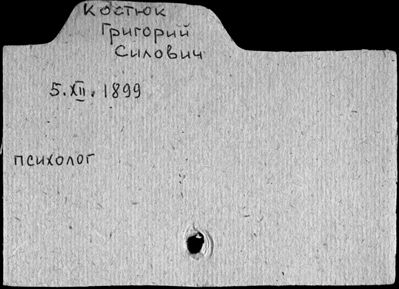 Костюк
Григорий
Силович
5.XII.1899
психолог